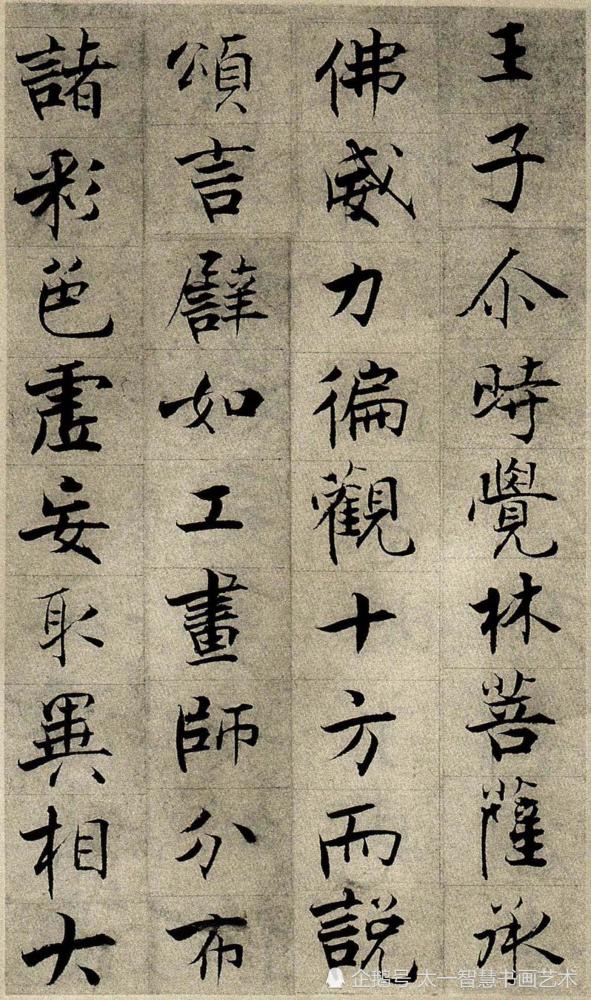 王子尒時覺林菩薩承
佛威力徧觀十方而說
頌言譬如工畫師分布
諸彩色虛妄取異相大
企鹅号 太一智慧书画艺术